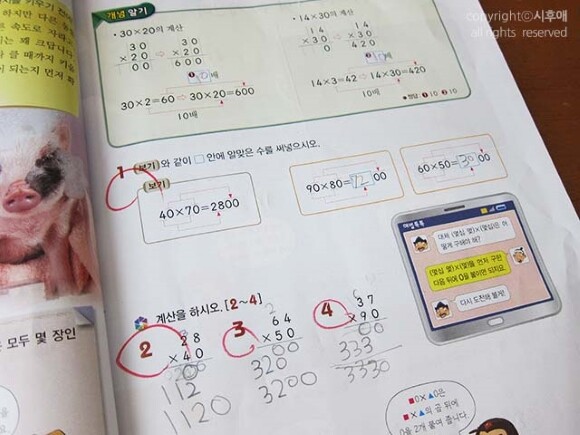 copyrightⓒ시후애
all rights reserved
개념 알기
• 30×20의 계산
3 0
×2 0
0 0
3 0
×2 0
6 0 0
❶ 10배
30×2=60 ⇨ 30×20=600
10배
• 14×30의 계산
1 4
×3 0
0
1 4
×3 0
4 2 0
❷ 10배
14×3=42 ⇨ 14×30=420
10배
• 정답 : ❶ 10 ❷ 10
1 보기 와 같이 □ 안에 알맞은 수를 써넣으시오.
보기
40×70=2800
90×80=7200
60×50=3000
대체 (몇십 몇)×(몇십)은 어
떻게 구해야 해?
(몇십 몇)×(몇)을 먼저 구한
다음 뒤에 0을 붙이면 되지요.
다시 도전해 볼게!
계산을 하시오. [2~4]
2
2 8
× 4 0
112
1120
3
2
6 4
× 5 0
00
320
3200
4
6
3 7
× 9 0
00
333
3330
■0×▲0은
■×▲의 곱 뒤에
0을 2개 붙여 줍니다.
모두 몇 장인